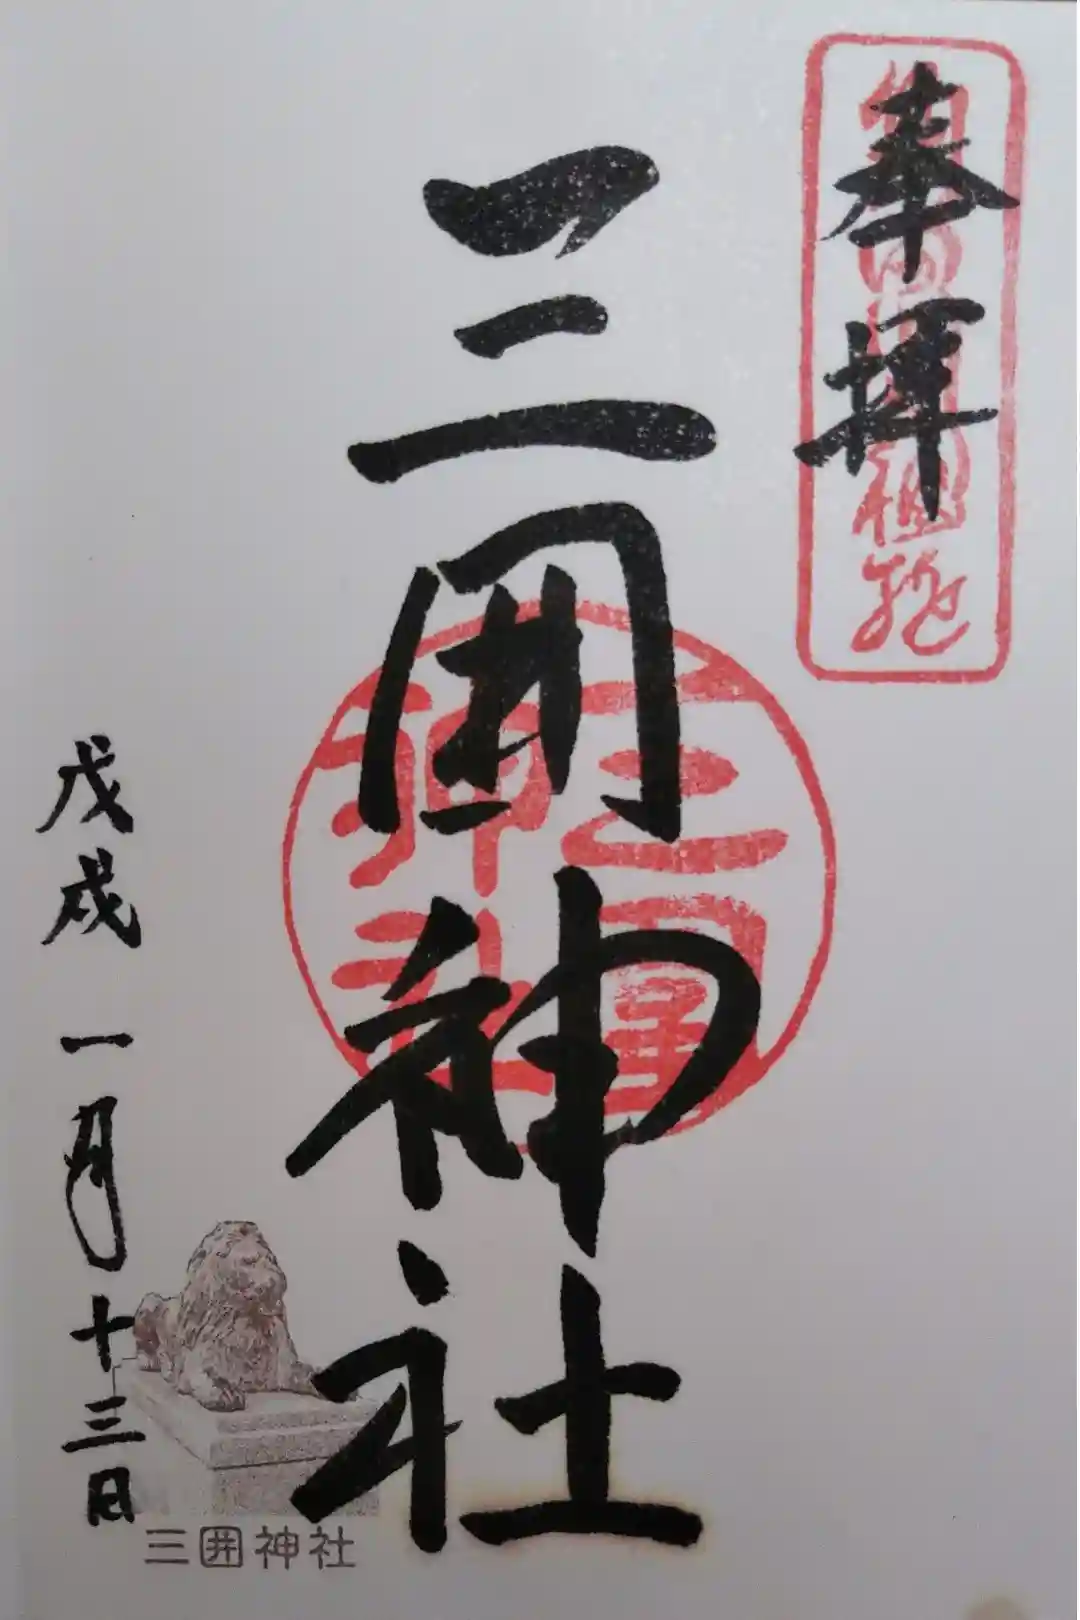 奉拝
三囲神社
戊戌 一月十三日
三囲神社
三囲神社